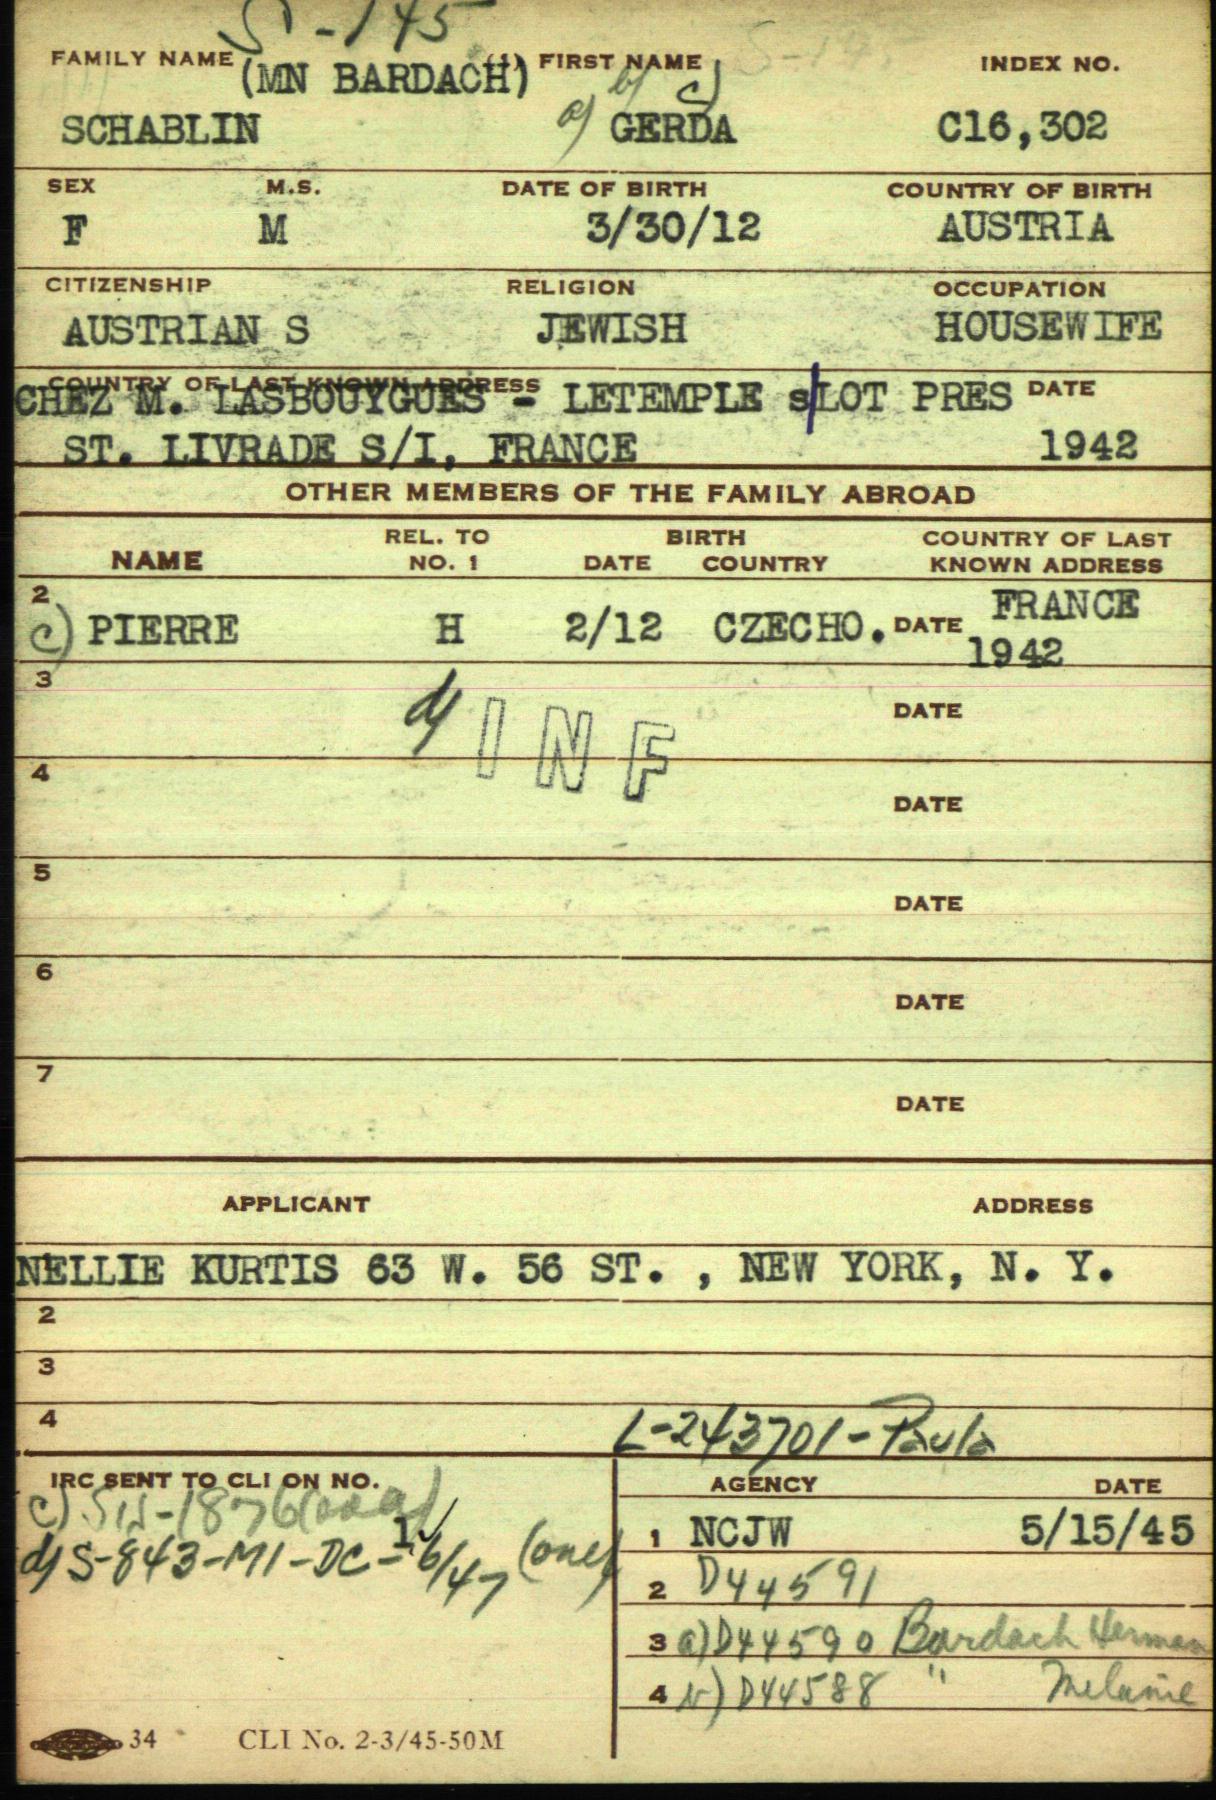 S-145
FAMILY NAME (1) FIRST NAME INDEX NO.
(MN BARDACH) b) c)
SCHABLIN a) GERDA C16,302
SEX M.S. DATE OF BIRTH COUNTRY OF BIRTH
F M 3/30/12 AUSTRIA
CITIZENSHIP RELIGION OCCUPATION
AUSTRIAN S JEWISH HOUSEWIFE
COUNTRY OF LAST KNOWN ADDRESS DATE
CHEZ M. LASBOUYGUES - LETEMPLE s/LOT PRES
ST. LIVRADE S/I, FRANCE 1942
OTHER MEMBERS OF THE FAMILY ABROAD
REL. TO BIRTH COUNTRY OF LAST
NAME NO. 1 DATE COUNTRY KNOWN ADDRESS
2 FRANCE
c) PIERRE H 2/12 CZECHO. DATE
1942
3 DATE
d) INF
4 DATE
5 DATE
6 DATE
7 DATE
APPLICANT ADDRESS
NELLIE KURTIS 63 W. 56 ST. , NEW YORK, N. Y.
2
3
4 L-243701-Paula
IRC SENT TO CLI ON NO. AGENCY DATE
1 NCJW 5/15/45
d) S-843-MI-DC-16/47 (one)
2 D44591
3 a) D44590 Bardach Herman
4 b) D44588 " Melanie
34 CLI No. 2-3/45-50M